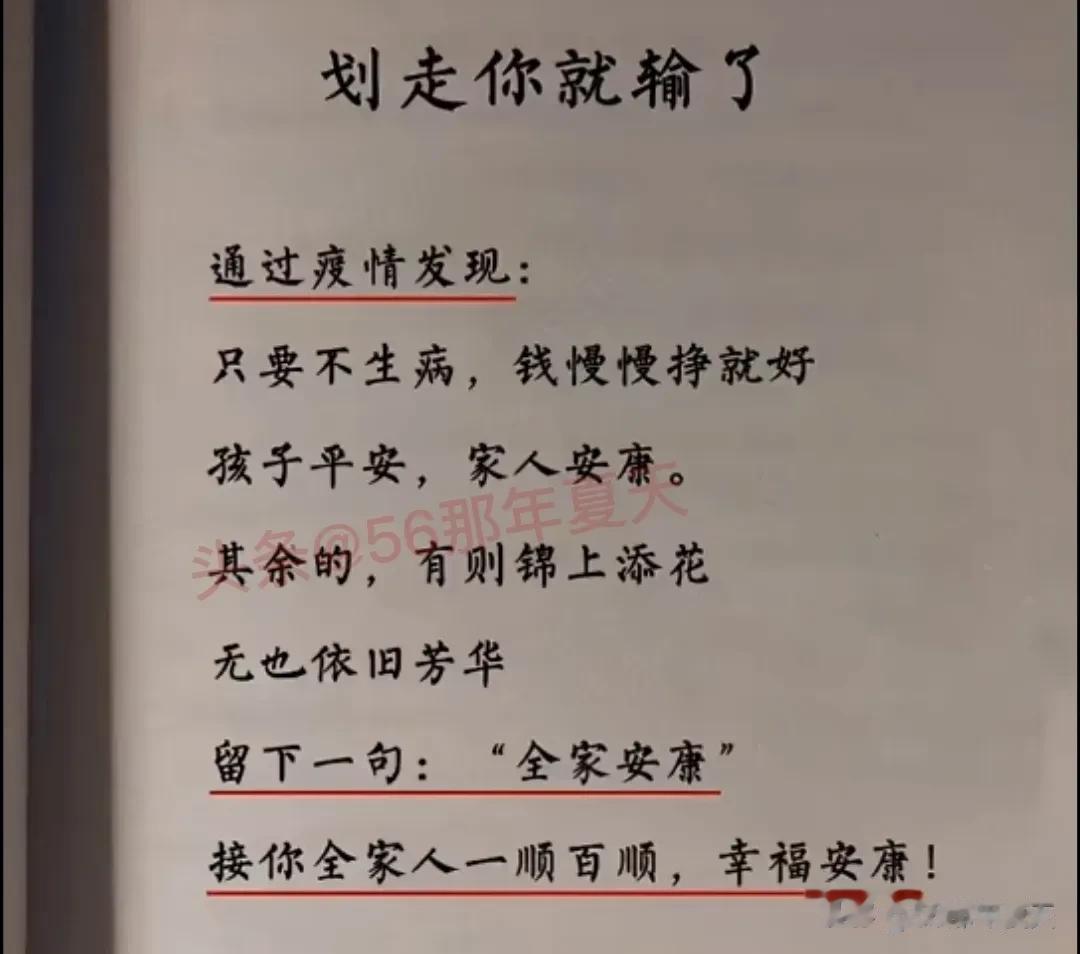 划走你就输了
通过疫情发现：
只要不生病，钱慢慢挣就好
孩子平安，家人安康。
头条@56那年夏天
其余的，有则锦上添花
无也依旧芳华
留下一句：“全家安康”
接你全家人一顺百顺，幸福安康！